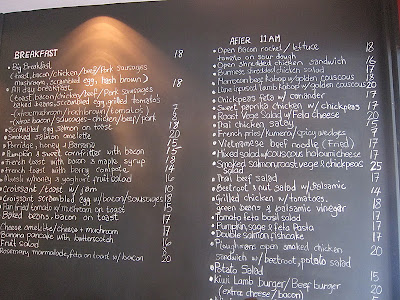 BREAKFAST
• Big Breakfast 18
(toast, bacon/chicken/beef/Pork sausages
mushroom, scrambled egg, hash brown)
• All day breakfast 18
(toast bacon/chicken/beef/Pork Sausages
baked beans, scrambled egg, grilled tomato's
-(extra mushroom/hash brown/tomato) 7
-(extra bacon/sausages-chicken/beef/pork 8
• Scrambled egg salmon on toast 17
• Smoked salmon omelette 20
• Porridge, honey & banana 15
• Pumpkin & sweet cornfritter with bacon 15
• French toast with bacon & maple syrup 18
• French toast with berry compote 14
• Muesli w/honey & yoghurt, fruit salad 17
Croissant/toast w/jam 10
• Croissant scrambled egg w/bacon/sausages 18
• Pan fried tomato w/mushroom on toast 15
Baked beans, bacon on toast 17
Cheese omelette/cheese + mushroom 17
Banana pancake with butterscotch 17
Fruit salad 16
Rosemary, marmalade, feta on toast w/bacon 20
AFTER 11AM
• Open Bacon rocket/lettuce 18
tomato on sour dough
• Open shredded chicken sandwich 16
• Burmese shredded chicken salad 17
• Moroccan beef kebab w/golden couscous 18
• Lime infused lamb kebab w/golden couscous 20
• Chickpeas feta w/coriander 17
• Sweet paprika chicken w/chickpeas 17
• Roast Vege Salad w/Feta cheese 20
• Thai chicken salay 15
• French fries/Kumera/spicy wedges 7
• Vietnamese beef noodle (Fried) 17
• Mixed salad w/couscous haloumi cheese 17
• Smoked salmon roast vege & chickpeas 25
• Thai beef salad 17
• Beetroot & nut salad w/Balsamic 14
• Grilled chicken w/tomatoes. 17
green beans & balsamic vinegar
• Tomato feta basil salad 17
• Pumpkin, sage & feta Pasta 17
• Double salmon fishcake 17
• Ploughmans open smoked chicken 20
sandwich w/beetroot, potato salad
• Potato Salad 15
• Kiwi Lamb burger/Beef burger 20
(extra cheese/bacon)